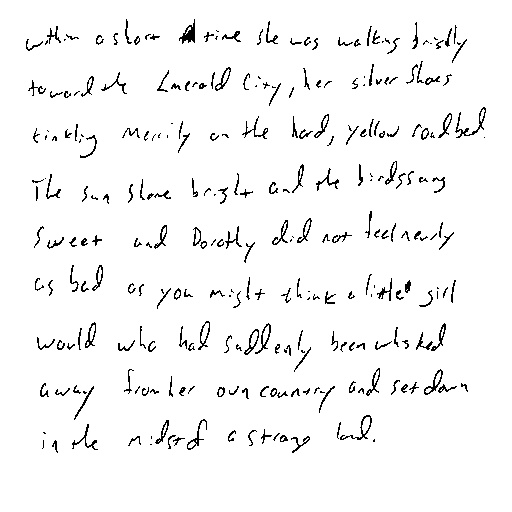 within a short time she was walking briskly
toward the Emerald City, her silver Shoes
tinkling merrily on the hard, yellow roadbed.
The sun shone bright and the birds sang
Sweet and Dorothy did not feel nearly
as bad as you might think a little girl
would who had suddenly been whisked
away from her own country and set down
in the midst of a strange land.